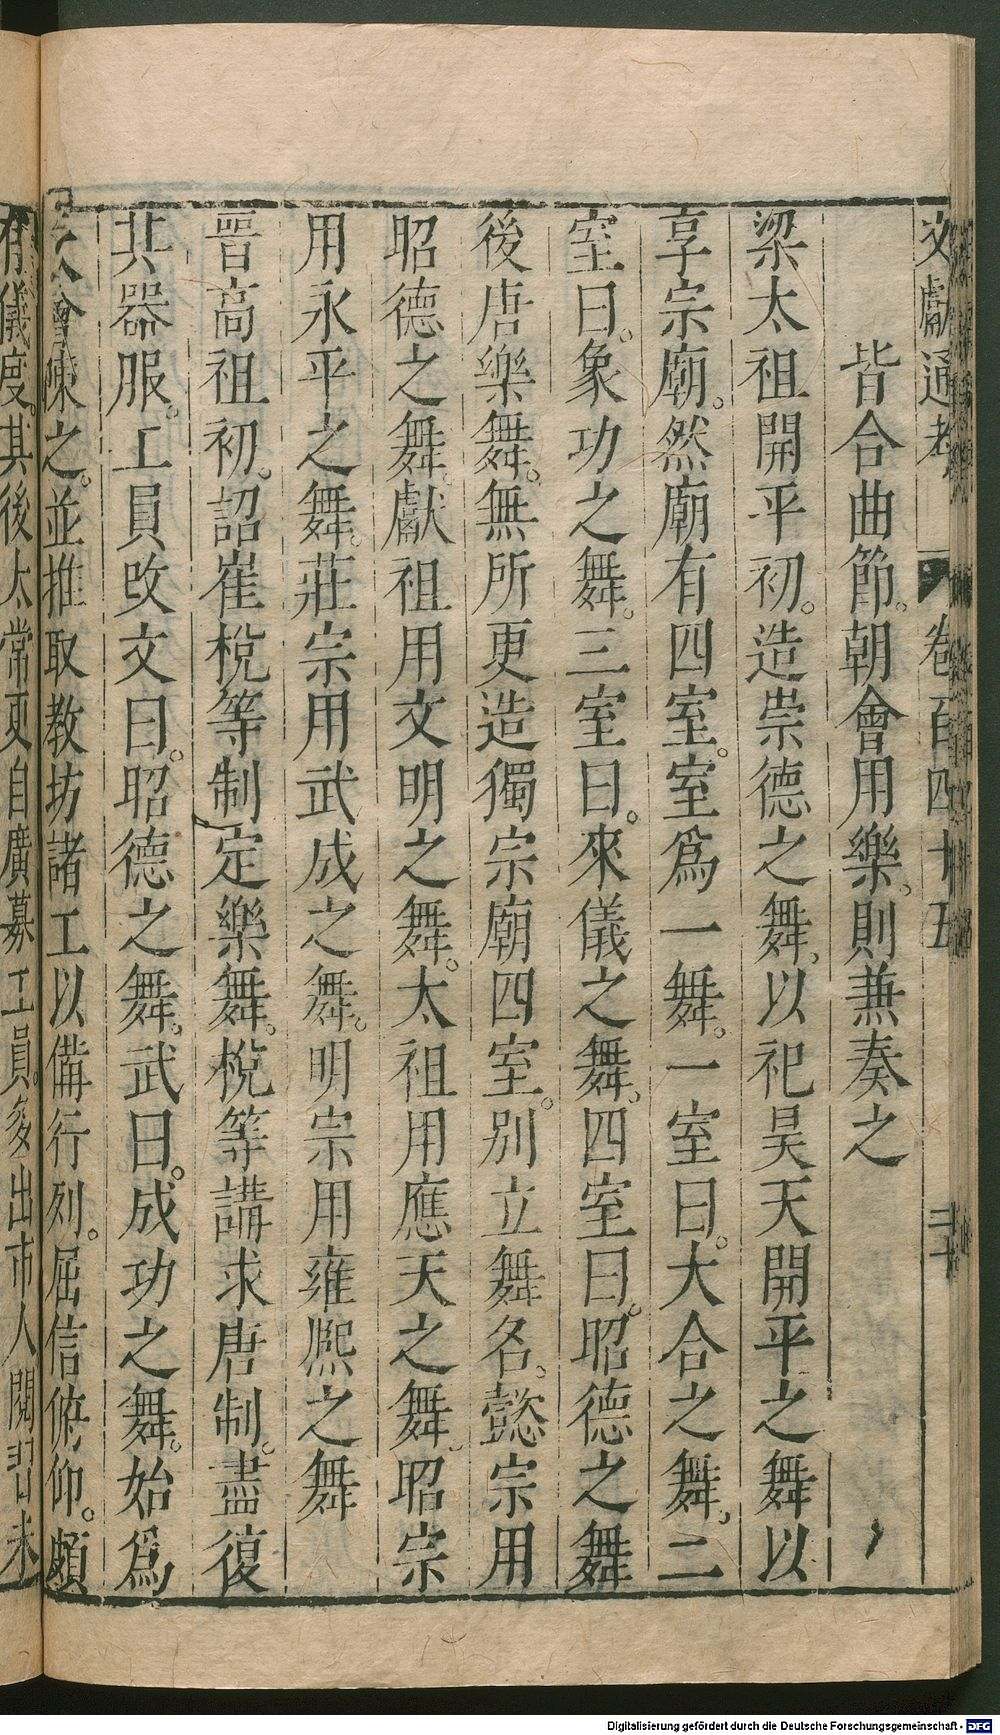 文獻通考 卷百四十五 二十
皆合曲節。朝會用樂。則兼奏之
梁太祖開平初。造崇德之舞。以祀昊天開平之舞以
享宗廟。然廟有四室。室爲一舞。一室曰。大合之舞。二
室曰。象功之舞。三室曰。來儀之舞。四室曰。昭德之舞
後唐樂舞。無所更造獨宗廟四室。別立舞名。懿宗用
昭德之舞。獻祖用文明之舞。太祖用應天之舞。昭宗
用永平之舞。莊宗用武成之舞。明宗用雍熈之舞
晋高祖初。詔崔梲等制定樂舞。梲等講求唐制。盡復
其器服。工員改文曰。昭德之舞。武曰。成功之舞。始爲
會陳之。並推取教坊諸工以備行列。屈信俯仰。頗
有儀度。其後太常更自廣募工員。多出市人閱習未
Digitalisierung gefördert durch die Deutsche Forschungsgemeinschaft - DFG